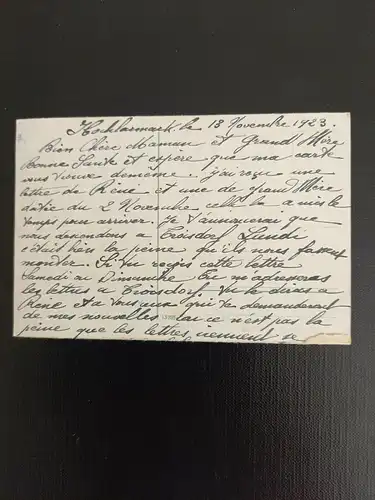 Hochlarmark le 18 Novembre 1923.
Bien Chère Maman et Grand Mère
Bonne Santé et espere que ma carte
vous de meme. j'ai reçue une
lettre de René et une de Grand Mère
datée du 2 Novembre celle la a mis le
temps pour arriver. Je t'annoncerai que
nous descendons a Troisdorf Lundi
c'était bien la peine qu'il nous fasse
monter. Si tu reçois cette lettre
Samedi ou Dimanche Tu m'adresseras
les lettres a Troisdorf Tu le diras a
René et a vous qui te demanderai
de mes nouvelles car ce n'est pas la
peine que les lettres viennent